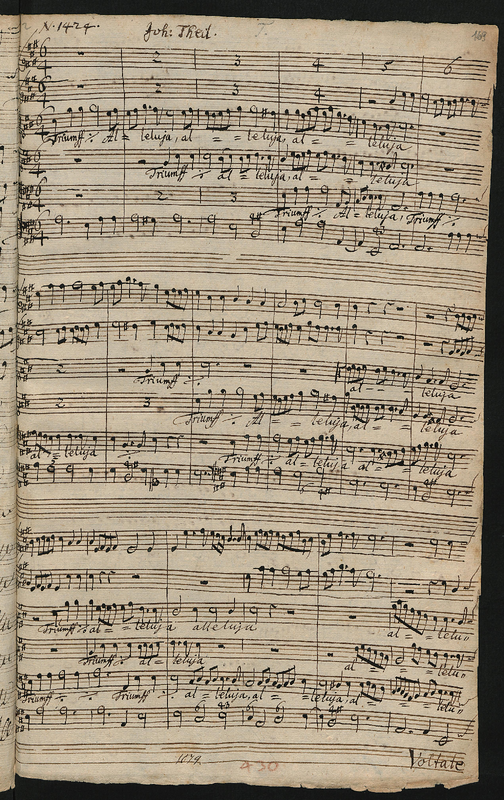 N. 1424. Joh: Theil. T. 169
2 3 4 5 6
2 3 4
Triumff :/: Al = leluja, al = = leluja, al = = leluja
Triumff :/: al = leluja, al = = leluja
2 3
Triumff :/: Al = leluja, Triumff :/:
2
Triumff :/:
al = = leluja
2 3
Triumff :/: Al = = leluja, al = = leluja
al = leluja
Triumff :/: al = leluja al = = leluja
Triumff :/: al = = leluja alleluja
al = = lelu=
Triumff :/: al = leluja
al = = lelu=
Triumff :/: al = = leluja, al = = leluja, al = = lelu=
430
Voltate